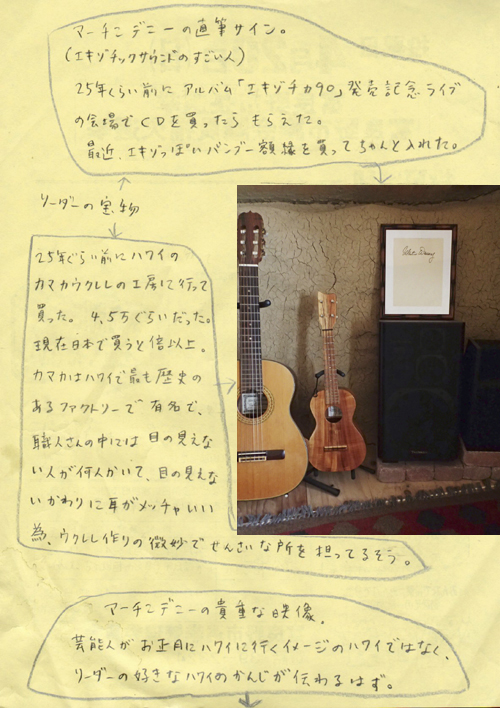 マーチンデニーの直筆サイン。
(エキゾチックサウンドのすごい人)
25年くらい前に アルバム「エキゾチカ90」発売記念ライブ
の会場でCDを買ったらもらえた。
最近、エキゾっぽいバンブー額縁を買ってちゃんと入れた。
リーダーの宝物
25年ぐらい前にハワイの
カマカウクレレの工房に行って
買った。4,5万ぐらいだった。
現在日本で買うと倍以上。
カマカはハワイで最も歴史の
あるファクトリーで有名で、
職人さんの中には目の見えな
い人が何人かいて、目の見えな
いかわりに耳がメッチャいい
為、ウクレレ作りの微妙でせんさいな所を担ってるそう。
マーチンデニーの貴重な映像。
芸能人がお正月にハワイに行くイメージのハワイではなく、
リーダーの好きなハワイのかんじが伝わるはず。